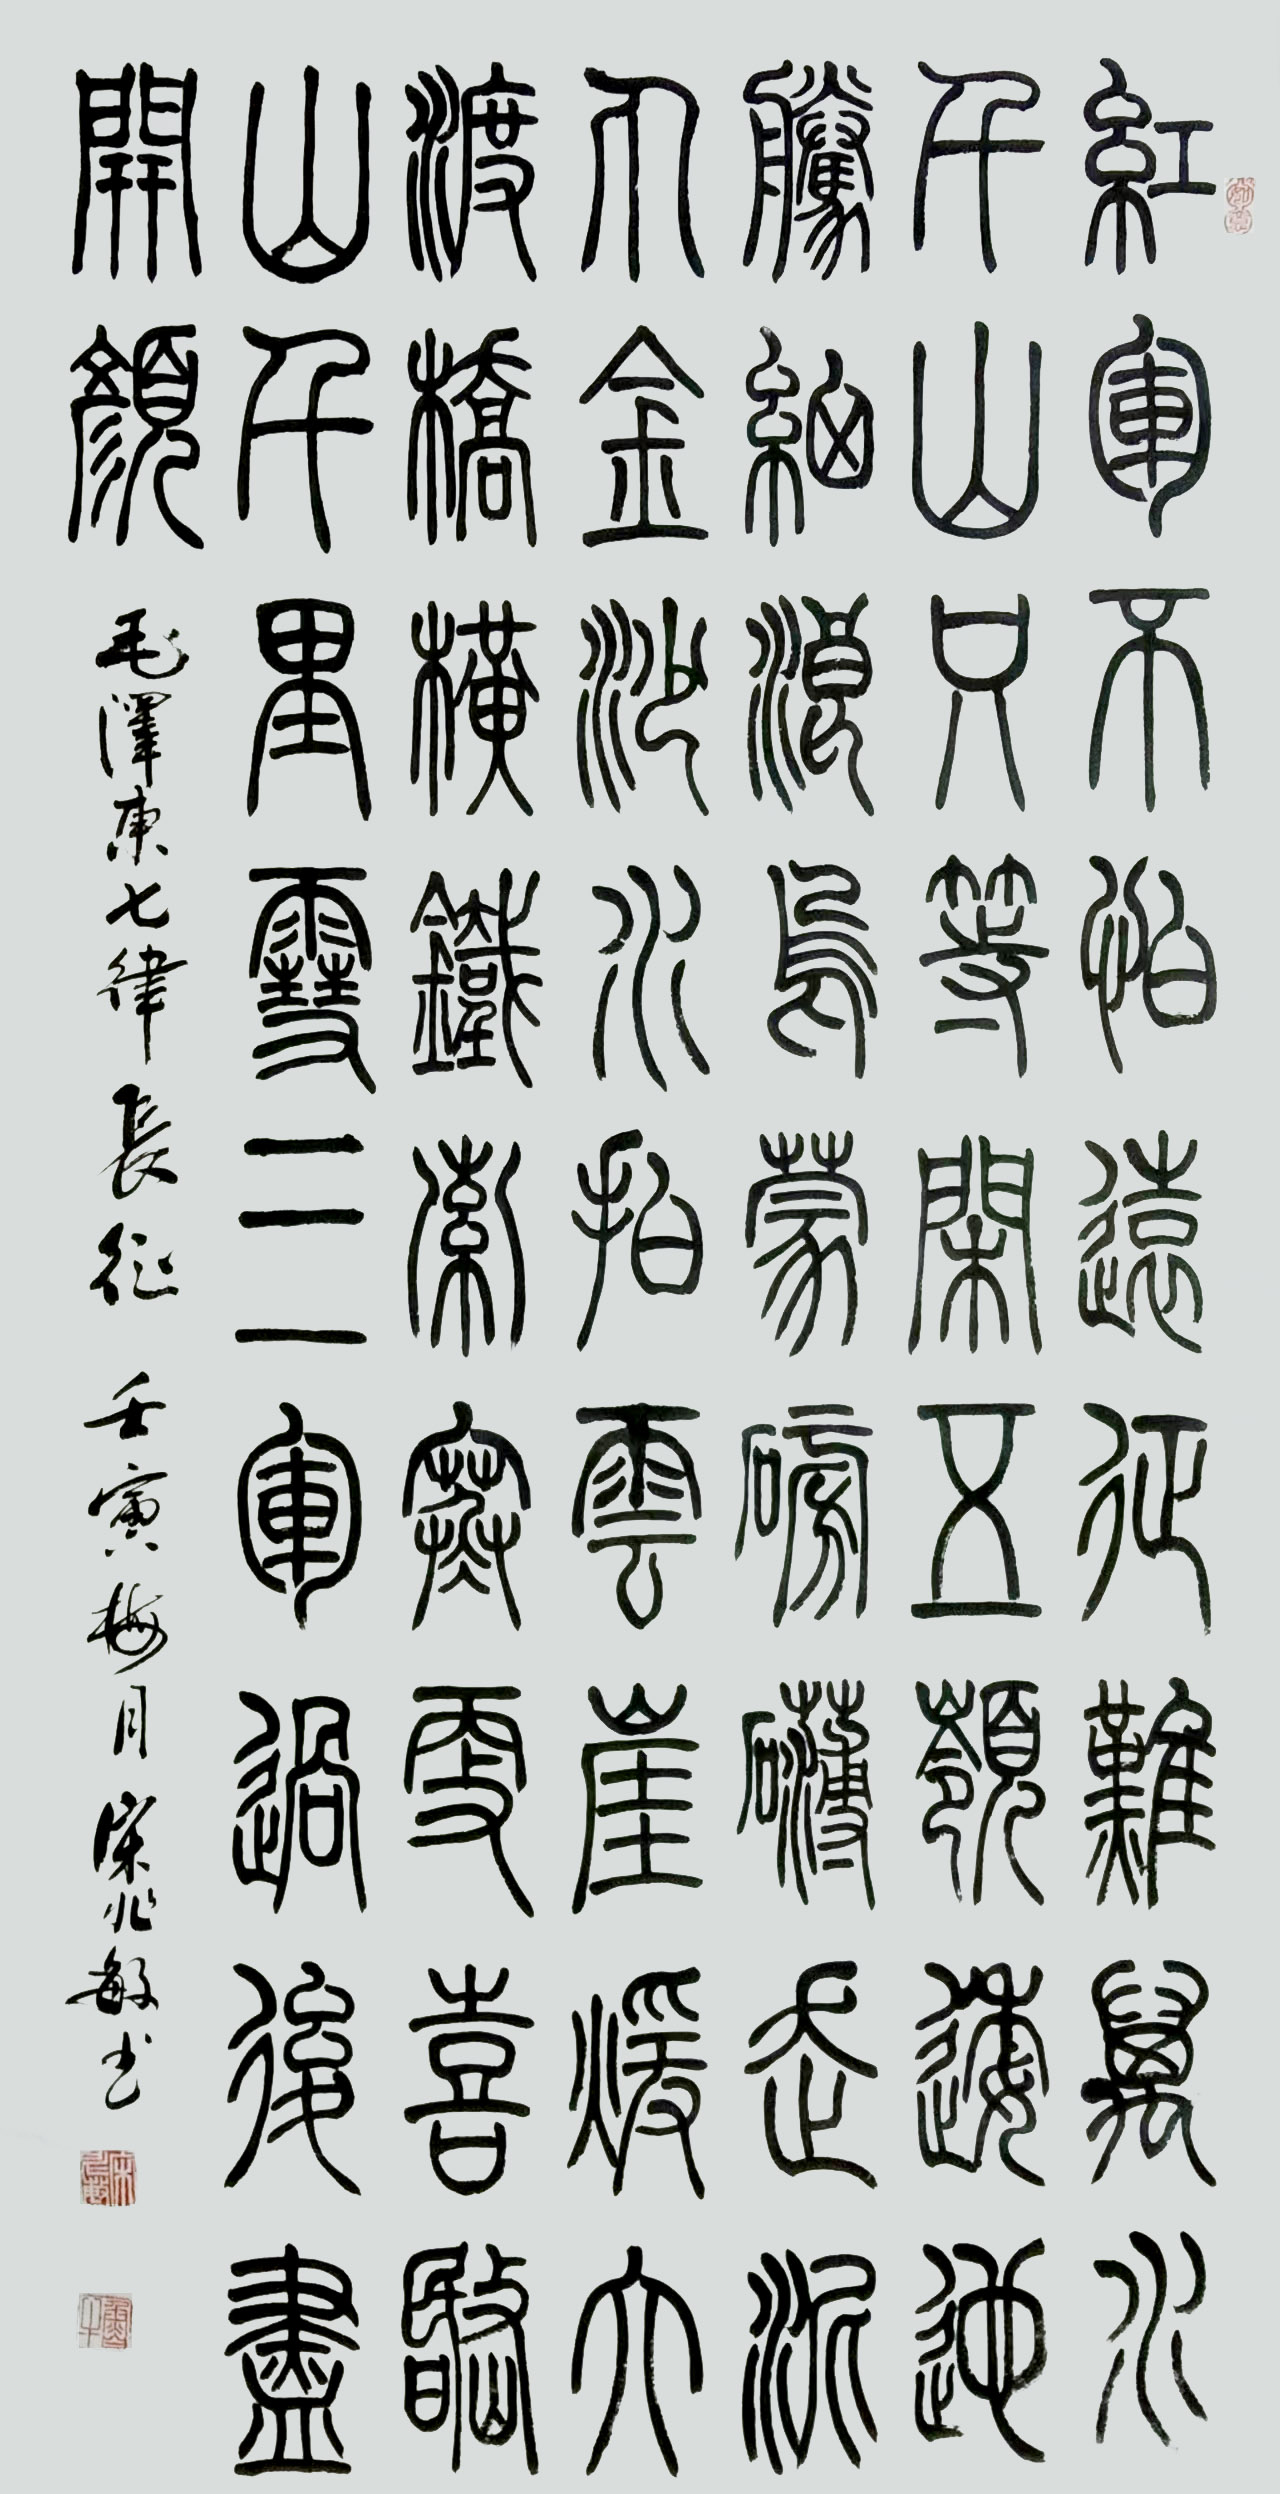 紅軍不怕遠征難萬水
千山只等閑五嶺逶迤
騰細浪烏蒙磅礴走泥
丸金沙水拍雲崖煖大
渡橋橫鐵索寒更喜岷
山千里雪三軍過後盡
開顏
毛澤東七律長征 壬寅梅月 宋兆敏书